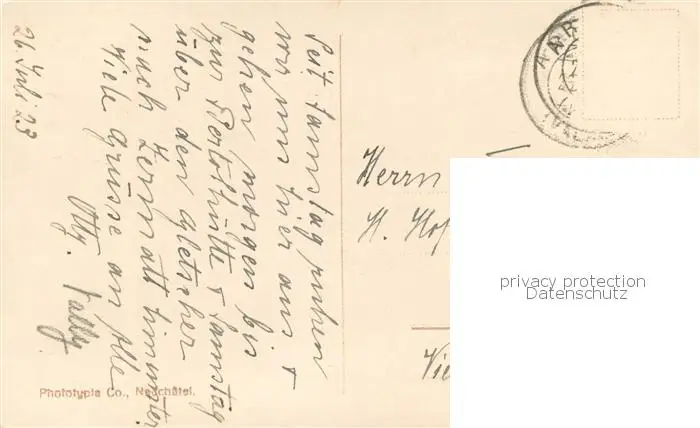 26. Juli 23
Seit Samstag ruhen
wir nun hier aus &
gehen morgen bis
zur Bertolhütte & Samstag
über den Gletscher
nach Zermatt hinunter.
Viele Grüsse an Alle
Herrn
H. Hof
Phototypie Co., Neuchâtel.
privacy protection
Datenschutz